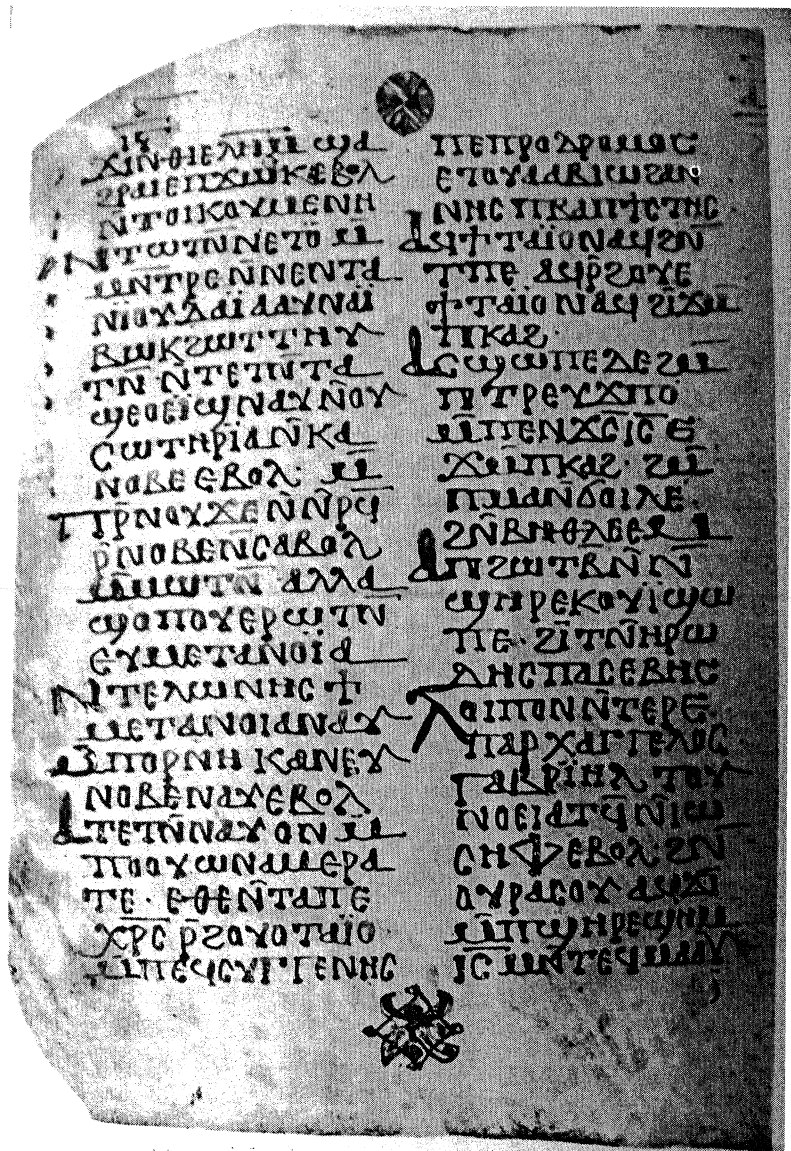 ⲓⲋ
ϫⲓⲛⲑⲓⲉⲗⲏⲙ ϣⲁ
ϩⲣⲁⲓ ⲉⲡϫⲱⲕ ⲉⲃⲟⲗ
ⲛ̄ⲧⲟⲓⲕⲟⲩⲙⲉⲛⲏ
ⲛ̄ⲧⲱⲧⲛ̄ ⲛⲉⲧⲟ̄ ⲙ̄
ⲙⲛ̄ⲧⲣⲉ ⲛ̄ⲛⲉⲛⲧⲁ
ⲛⲓⲟⲩⲇⲁⲓ ⲁⲁⲩ ⲛⲁⲓ̈
ⲃⲱⲕ ϩⲱⲧⲧⲏⲩ
ⲧⲛ̄ ⲛ̄ⲧⲉⲧⲛ̄ⲧⲁ
ϣⲉⲟⲉⲓϣ ⲛⲁⲩ ⲛ̄ⲟⲩ
ⲥⲱⲧⲏⲣⲓⲁ ⲛ̄ⲕⲁ
ⲛⲟⲃⲉ ⲉⲃⲟⲗ· ⲙ̄
ⲡⲣ̄ⲛⲟⲩϫⲉ ⲛ̄ⲛ̄ⲣⲉϥ
ⲣ̄ⲛⲟⲃⲉ ⲛ̄ⲥⲁⲃⲟⲗ
ⲙ̄ⲙⲱⲧⲛ̄ ⲁⲗⲗⲁ
ϣⲟⲡⲟⲩ ⲉⲣⲱⲧⲛ̄
ⲉⲩⲙⲉⲧⲁⲛⲟⲓ̈ⲁ
ⲛ̄ⲧⲉⲗⲱⲛⲏⲥ ϯ
ⲙⲉⲧⲁⲛⲟⲓⲁ ⲛⲁⲩ
ⲙ̄ⲡⲟⲣⲛⲏ ⲕⲁ ⲛⲉⲩ
ⲛⲟⲃⲉ ⲛⲁⲩ ⲉⲃⲟⲗ
ⲁⲧⲉⲧⲛ̄ⲛⲁⲩ ⲟⲛ ⲙ̄
ⲡⲟⲟⲩ ⲱ ⲛⲁⲙⲉⲣⲁ
ⲧⲉ· ⲉⲑⲉ ⲛ̄ⲧⲁⲡⲉ
ⲭⲣ̄ⲥ̄ ⲣ̄ϩⲟⲩⲟ ⲧⲁⲓ̈ⲟ
ⲙ̄ⲡⲉϥⲥⲩⲅⲅⲉⲛⲏⲥ
ⲡⲉⲡⲣⲟⲇⲣⲟⲙⲟⲥ
ⲉⲧⲟⲩⲁⲁⲃ ⲓ̈ⲱϩⲁⲛ
ⲛⲏⲥ ⲡⲕⲁⲡϯⲥⲧⲏⲥ·
ⲁϥϯⲧⲁⲓ̈ⲟ ⲛⲁϥ ϩⲛ̄
ⲧⲡⲉ ⲁϥⲣ̄ϩⲟⲩⲉ
ϯⲧⲁⲓⲟ ⲛⲁϥ ϩⲓϫⲙ̄
ⲡⲕⲁϩ·
ⲁⲥϣⲱⲡⲉ ⲇⲉ ϩⲙ̄
ⲡⲧⲣⲉⲩϫⲡⲟ
ⲙ̄ⲡⲉⲛϫ̄ⲥ̄ ⲓ̄ⲥ̄ ⲉ
ϫⲙ̄ⲡⲕⲁϩ· ϩⲙ̄
ⲡⲙⲁⲛ̄ϭⲟⲓⲗⲉ·
ϩⲛ̄ⲃⲏⲑⲗⲉⲉⲙ
ⲁⲡϩⲱⲧⲃ̄ ⲛ̄ⲛ̄
ϣⲏⲣⲉ ⲕⲟⲩⲓ̈ ϣⲱ
ⲡⲉ· ϩⲓⲧⲛ̄ϩⲏⲣⲱ
ⲇⲏⲥ ⲡⲁⲥⲉⲃⲏⲥ
ⲗⲟⲓⲡⲟⲛ ⲛ̄ⲧⲉⲣⲉ
ⲡⲁⲣⲭⲁⲅⲅⲉⲗⲟⲥ
ⲅⲁⲃⲣⲓⲏⲗ ⲧⲟⲩ
ⲛⲟⲉⲓⲁⲧϥ̄ ⲛ̄ⲓⲱ
ⲥⲏⲫ ⲉⲃⲟⲗ· ϩⲛ̄
ⲟⲩⲣⲁⲥⲟⲩ ⲁϥϫⲓ
ⲙ̄ⲡϣⲏⲣⲉ ϣⲏⲙ
ⲓ̄ⲥ̄ ⲙⲛ̄ⲧⲉϥⲙⲁⲁⲩ